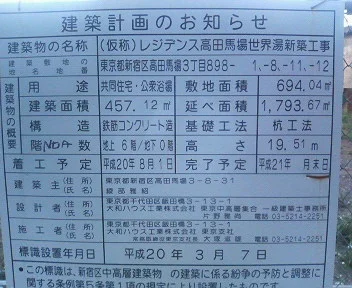 建築計画のお知らせ
建築物の名称 (仮称)レジデンス高田馬場世界湯新築工事
建築敷地の地名地番 東京都新宿区高田馬場3丁目898-1、-8、-11、-12
建築物の概要
用途 共同住宅・公衆浴場 敷地面積 694.04㎡
建築面積 457.12㎡ 延べ面積 1,793.67㎡
構造 鉄筋コンクリート造 基礎工法 杭工法
階数 地上6階/地下0階 高さ 19.51m
着工予定 平成20年8月1日 完了予定 平成21年 月末日
建築主 (住所) 東京都新宿区高田馬場3-8-31
(氏名) 綾部雅昭
設計者 (住所) 東京都千代田区飯田橋3-13-1
(氏名) 大和ハウス工業株式会社 東京中高層集合一級建築士事務所
片野雅尚 電話 03-5214-2251
施工者 (住所) 東京都千代田区飯田橋3-13-1
(氏名) 大和ハウス工業株式会社 東京支店
電話 03-5214-2251
標識設置年月日 平成20年3月7日
この標識は、新宿区中高層建築物の建築に係る紛争の予防と調整に
関する条例第5条第1項の規定により設置したものです。